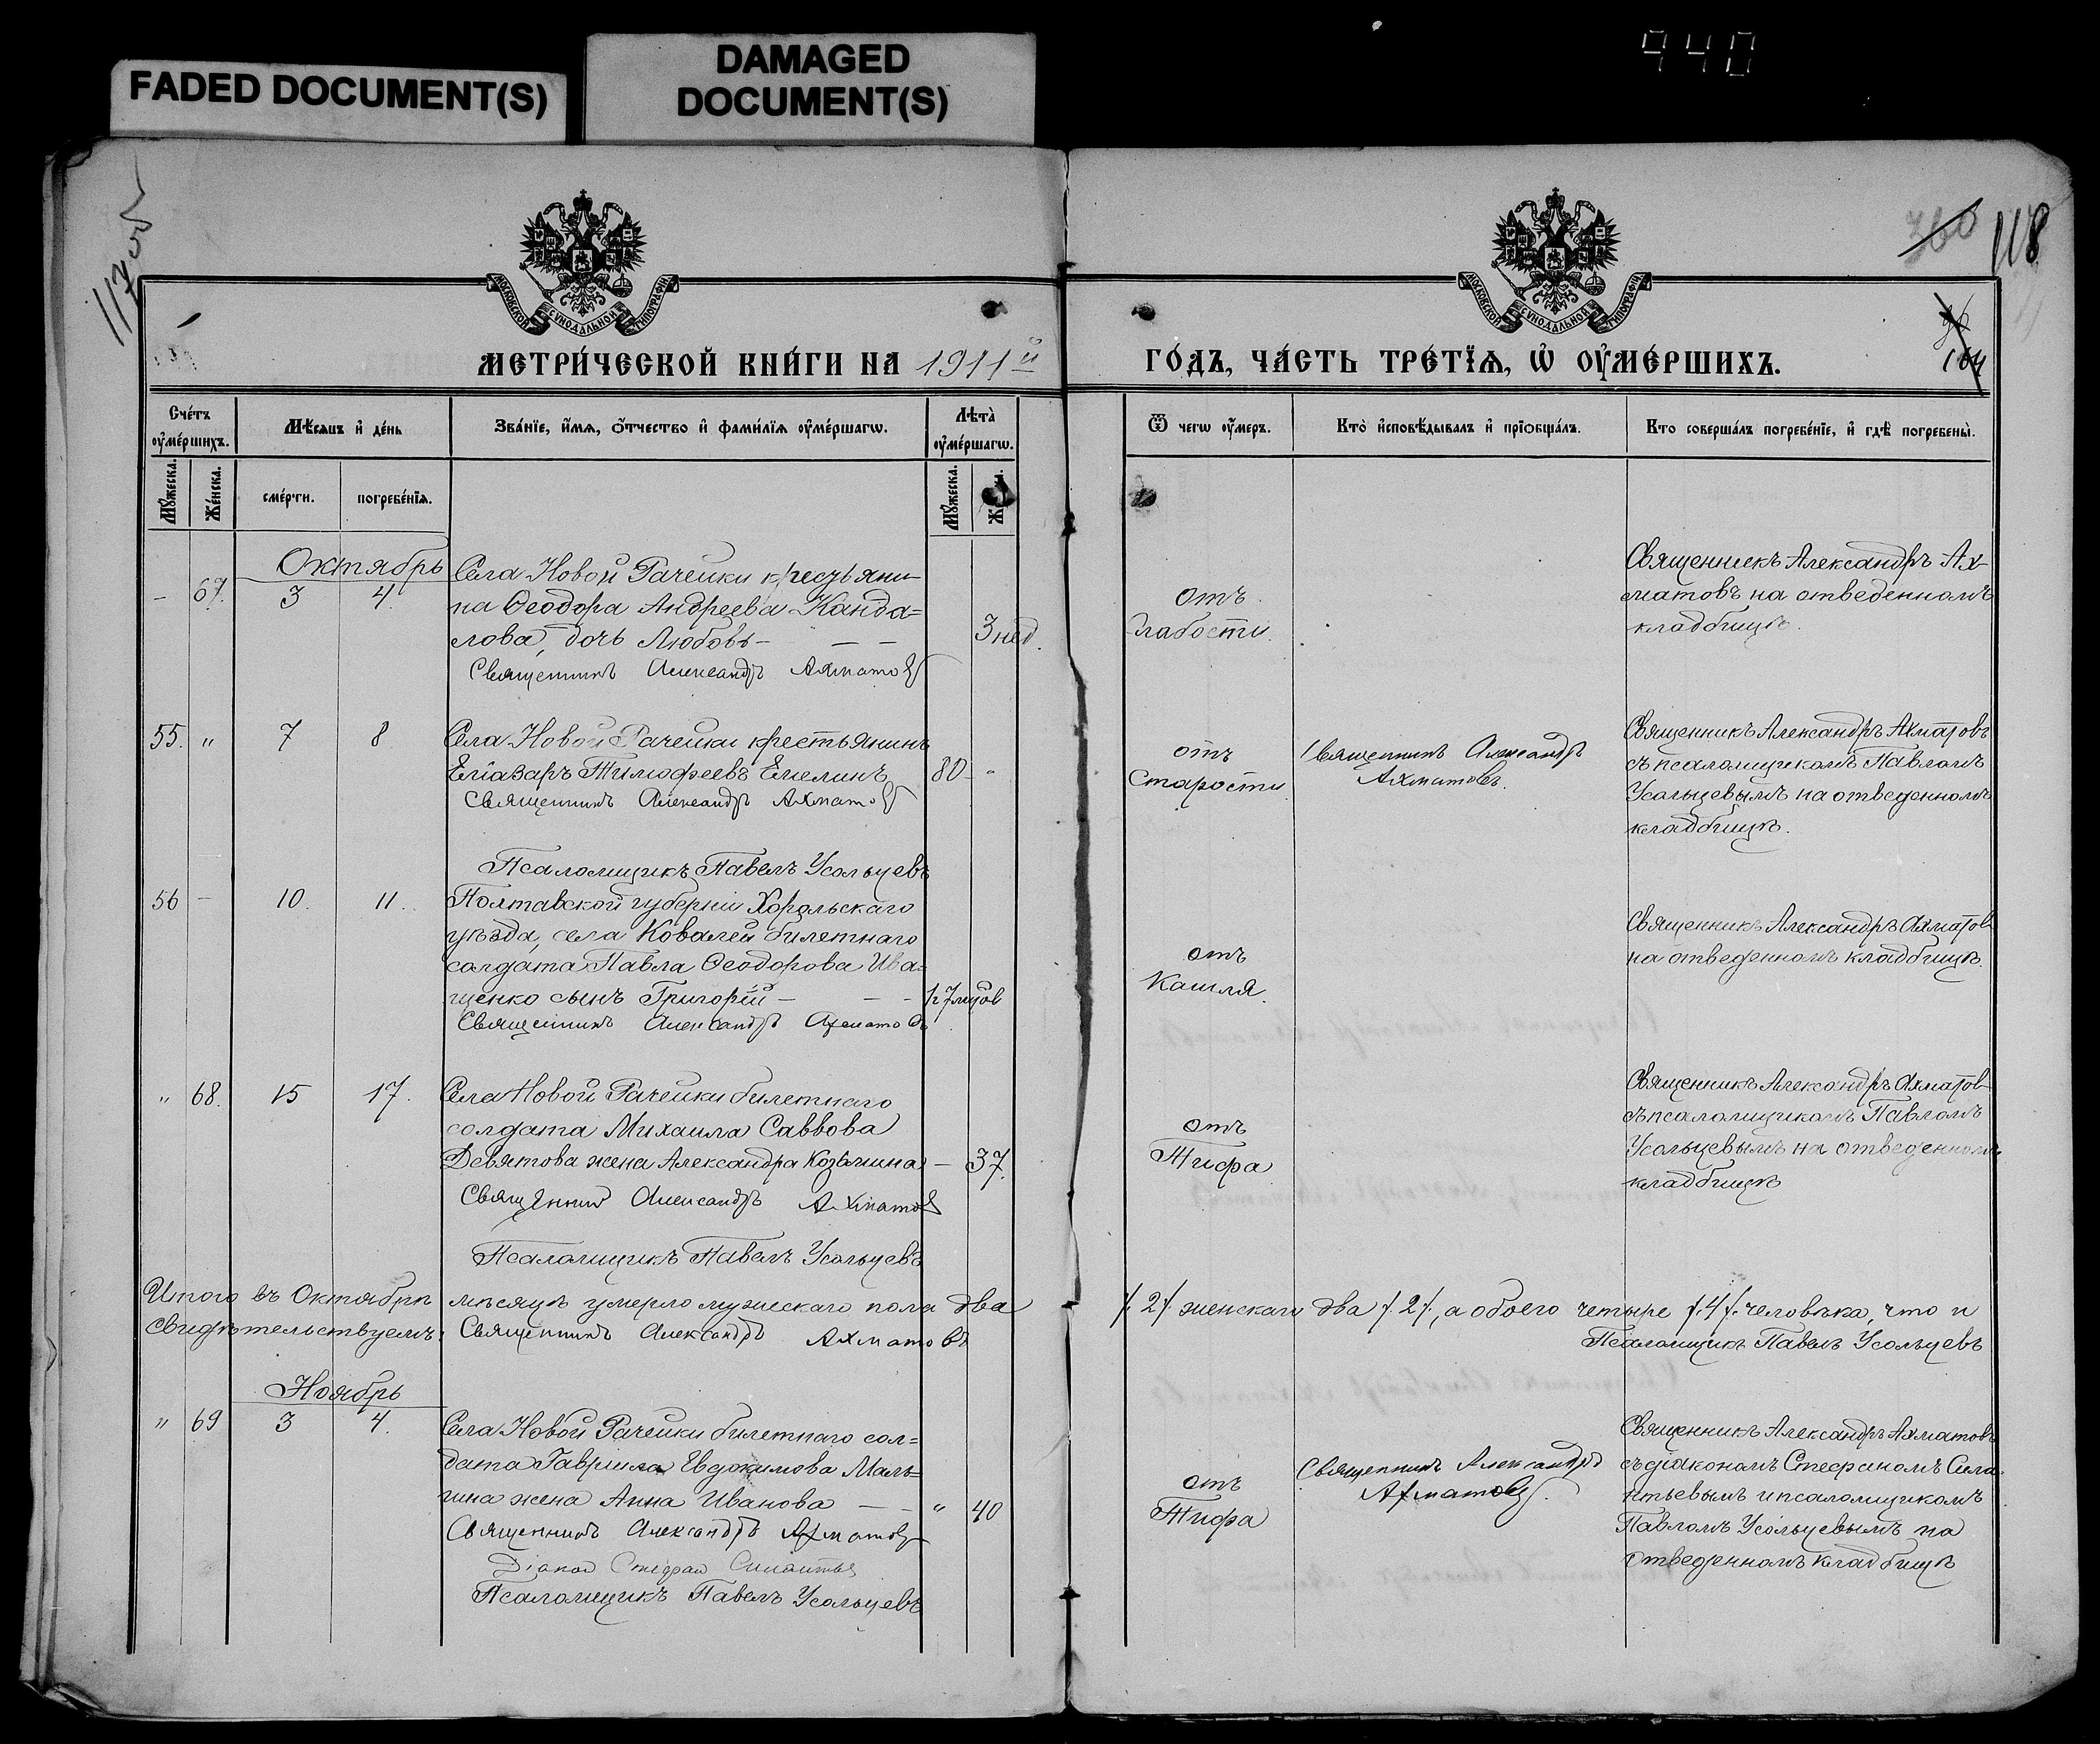 FADED DOCUMENT(S)
DAMAGED
DOCUMENT(S)
940
117 об
360 118
104
МОСКОВСКОЙ СѴНОДАЛЬНОЙ ТИПОГРАФІИ
МОСКОВСКОЙ СѴНОДАЛЬНОЙ ТИПОГРАФІИ
МЕТРИ́ЧЕСКОЙ КНИ́ГИ НА 1911й ГО́ДЪ, ЧА́СТЬ ТРЕ́ТЇѦ, Ѡ҆ ОУ҆МЕ́РШИХЪ.
Сче́тъ оу҆ме́ршихъ.
Мѣ́сяцъ и҆ де́нь
Зва́нїе, и҆́мѧ, ѻ҆́тчество и҆ фами́лїѧ оу҆ме́ршагѡ.
Лѣта̀ оу҆ме́ршагѡ.
Ѿ чегѡ оу҆́меръ.
Кто̀ и҆сповѣ́дывалъ и҆ прїѡбща́лъ.
Кто соверша́лъ погребе́нїе, и҆ гдѣ̀ погребены̀.
Мꙋ́жеска.
Же́нска.
сме́рти.
погребе́нїѧ.
Мꙋ́жеска.
Октябрь
– 67. 3 4. Села Новой Рачейки крестьяни-
на Ѳеодора Андреева Канда=
лова, дочь Любовь – — — 3 нед.
Священникъ Александръ Ахматовъ
отъ
слабости.
Священникъ Александръ Ах-
матовъ на отведенномъ
кладбищѣ.
55. " 7 8 Села Новой Рачейки крестьянинъ
Елiазаръ Тимофеевъ Емелинъ 80 - "
Священникъ Александръ Ахматовъ
Псаломщикъ Павелъ Усольцевъ
отъ
Старости
Священникъ Александръ
Ахматовъ.
Священникъ Александръ Ахматовъ
съ псаломщикомъ Павломъ
Усольцевымъ на отведенномъ
кладбищѣ.
56 – 10. 11. Полтавской губернiи Хорольскаго
уѣзда, села Ковалей билетнаго
солдата Павла Ѳеодорова Ива=
щенко сынъ Григорiй – — -
Священникъ Александръ Ахматовъ
отъ
Кашля.
Священникъ Александръ Ахматов
на отведенномъ кладбищѣ.
" 68. 15 17. Села Новой Рачейки билетнаго
солдата Михаила Саввова
Девятова жена Александра Козьмина – 37.
Священникъ Александръ Ахматовъ
Псаломщикъ Павелъ Усольцевъ
отъ
Тифа
Священникъ Александръ Ахматов
съ псаломщикомъ Павломъ
Усольцевымъ на отведенномъ
кладбищѣ
Итого въ Октябрѣ мѣсяцѣ умерло мужескаго пола два /. 2 /. женскаго два /. 2 /., а обоего четыре /. 4 /. человѣка, что и
свидѣтельствуемъ: Священникъ Александръ Ахматовъ Псаломщикъ Павелъ Усольцевъ
Ноябрь
" 69 3 4. Села Новой Рачейки билетнаго сол=
дата Гаврiила Евдокимова Маль-
гина жена Анна Иванова — - " 40
Священникъ Александръ Ахматовъ
Дiакон Стефан Силантьев
Псаломщикъ Павелъ Усольцевъ
отъ
Тифа
Священникъ Александръ
Ахматовъ.
Священникъ Александръ Ахматовъ
съ дiакономъ Стефаномъ Сила-
нтьевымъ и псаломщикомъ
Павломъ Усольцевымъ на
отведенномъ кладбищѣ